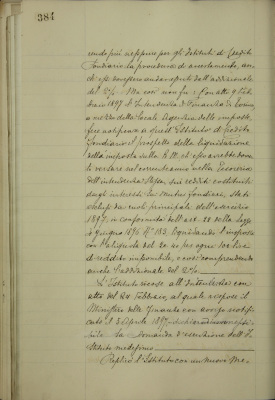 384
rendo più neppure per gli Istituti di Credito
Fondiario la procedura di accertamento, an-
ch'essi dovessero andare esenti dall'addizionale
del 2%. Ma così non fu: Con atto 9 Feb-
braio 1897 l'Intendenza di Finanza di Como,
a mezzo della locale Agenzia delle imposte,
fece notificare a quell'Istituto di Credito
Fondiario il prospetto della liquidazione
della imposta sulla R. M. ch'esso avrebbe dovu-
to versare nel corrente anno nella Tesoreria
dell'Intendenza stessa, sui redditi costituiti
dagli interessi su mutui fondiari, stati
al principio dell'esercizio
1897, in conformità dell'art. 28 della legge
Giugno 1896 N. 183, liquidando l'imposta
con l'aliquota del 20.40 per ogni 100 lire
di reddito imponibile, e così comprendendo
anche l'addizionale del 2%.
L'Istituto ricorse all'Intendenza con
atto del 24 Febbraio, al quale rispose il
Ministero delle Finanze con avviso notifi-
cato il 3 Aprile 1897
la domanda d'esenzione dell'I-
stituto medesimo.
Replicò l'Istituto con un nuovo Me-